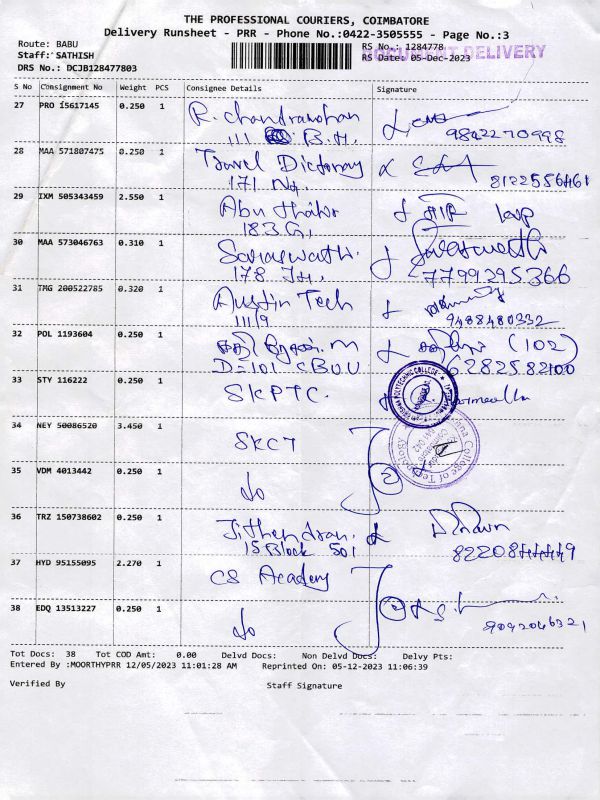 THE PROFESSIONAL COURIERS, COIMBATORE
Delivery Runsheet - PRR - Phone No.:0422-3505555 - Page No.:3
Route: BABU
Staff: SATHISH
DRS No.: DCJB128477803
RS No.: 1284778
DOCUMENT DELIVERY
RS Date: 05-Dec-2023
S No Consignment No Weight PCS Consignee Details Signature
27 PRO 15617145 0.250 1 R. Chandramohan
111 B.H. 9842270998
28 MAA 571807475 0.250 1 Travel Dictionary
171 8122556461
29 IXM 505343459 2.550 1 Abu thahir
183 G,
30 MAA 573046763 0.310 1 Saraswathi. Saraswathi
178 JH, 7799295366
31 TMG 200522785 0.320 1 Austin Tech
111/9 9488480332
32 POL 1193604 0.250 1 (102)
D-101 CBUU 6282582100
33 STY 116222 0.250 1 SKPTC.
34 NEY 50086520 3.450 1 SKCT
35 VDM 4013442 0.250 1 do 2
36 TRZ 150738602 0.250 1 Jithendran.
15 Block 501 8220844449
37 HYD 95155095 2.270 1 CS Academy
38 EDQ 13513227 0.250 1 do 2
9092046321
Tot Docs: 38 Tot COD Amt: 0.00 Delvd Docs: Non Delvd Docs: Delvy Pts:
Entered By :MOORTHYPRR 12/05/2023 11:01:28 AM Reprinted On: 05-12-2023 11:06:39
Verified By Staff Signature